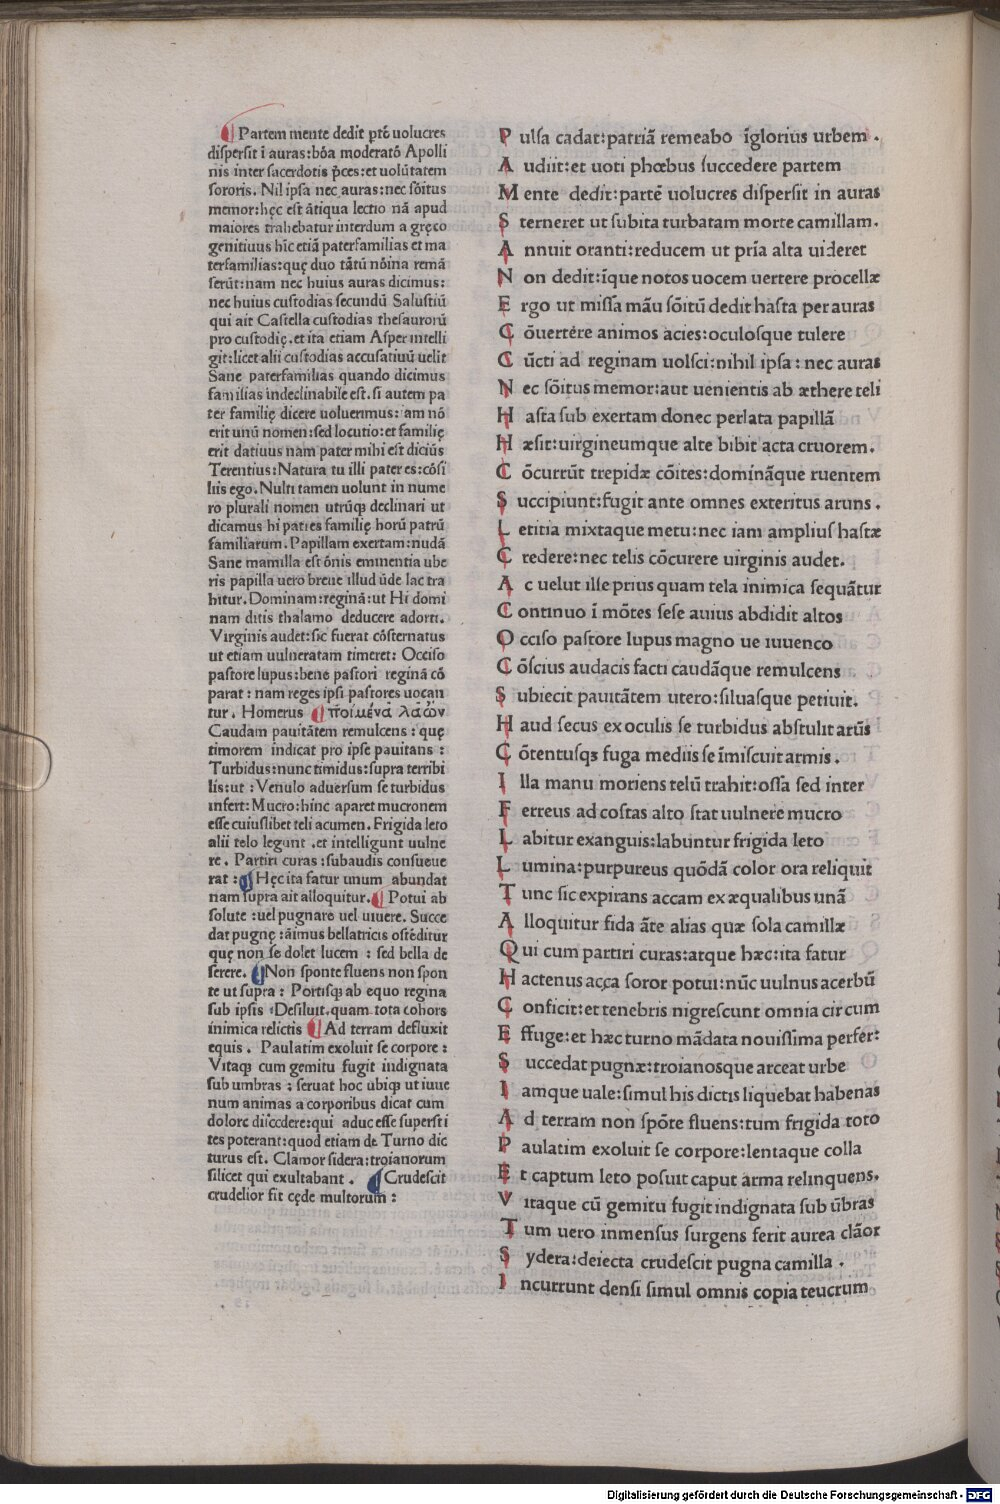 Partem mente dedit ꝑtē uolucres
dispersit ī auras:bōa moderatō Apolli
nis inter sacerdotis p̄ces:et uolūtatem
sororis. Nil ipsa nec auras:nec sōitus
memor:hęc est ātiqua lectio nā apud
maiores trahebatur interdum a gręco
genitiuus hīc etiā paterfamilias et ma
terfamilias:quę duo tātū nōina remā
serūt:nam nec huius auras dicimus:
nec huius custodias secundū Salustiū
qui ait Castella custodias thesaurorū
pro custodię.et ita etiam Asper intelli
git:licet alii custodias accusatiuū uelit
Sane paterfamilias quando dicimus
familias indeclinabile est. si autem pa
ter familię dicere uoluerimus:iam nō
erit unū nomen:sed locutio:et familię
erit datiuus nam pater mihi est dicius
Terentius:Natura tu illi pater es:cōsi
liis ego. Nulti tamen uolunt in nume
ro plurali nomen utrūq; declinari ut
dicamus hi patres familię horū patrū
familiarum. Papillam exertam:nudā
Sane mamilla est ōnis eminentia ube
ris papilla uero breue illud ūde lac tra
hitur. Dominam:reginā:ut Hi domi
nam ditis thalamo deducere adorti.
Virginis audet:sic fuerat cōsternatus
ut etiam uulneratam timeret: Occiso
pastore lupus:bene pastori reginā cō
parat : nam reges ipsi pastores uocan
tur. Homerus ποιμένα λαῶν
Caudam pauitātem remulcens : quę
timorem indicat pro ipse pauitans :
Turbidus:nunc timidus:supra terribi
lis:ut : Venulo aduersum se turbidus
infert:Mucro:hinc aparet mucronem
esse cuiuslibet teli acumen. Frigida leto
alii telo legunt .et intelligunt uulne
re . Partiri curas :subaudis consueue
rat : Hęc ita fatur unum abundat
nam supra ait alloquitur. Potui ab
solute :uel pugnare uel uiuere. Succe
dat pugnę :āimus bellatricis ostēditur
quę non se dolet lucem : sed bella de
serere. Non sponte fluens non spon
te ut supra : Portisq; ab equo regina
sub ipsis :Desiluit.quam tota cohors
inimica relictis Ad terram defluxit
equis . Paulatim exoluit se corpore :
Vitaq; cum gemitu fugit indignata
sub umbras : seruat hoc ubiq; ut iuue
num animas a corporibus dicat cum
dolore discedere:qui aduc esse superst i
tes poterant:quod etiam de Turno dic
turus est. Clamor sidera:troianorum
silicet qui exultabant . Crudescit
crudelior fit cęde multorum :
P ulsa cadat:patriā remeabo īglorius urbem .
A udiit:et uoti phœbus succedere partem
M ente dedit:partē uolucres dispersit in auras
S terneret ut subita turbatam morte camillam.
A nnuit oranti:reducem ut pr̄ia alta uideret
N on dedit:īque notos uocem uertere procellæ
E rgo ut missa māu sōitū dedit hasta per auras
C ōuertere animos acies:oculosque tulere
C ūcti ad reginam uolsci:nihil ipsa : nec auras
N ec sōitus memor:aut uenientis ab æthere teli
H asta sub exertam donec perlata papillā
H æsit:uirgineumque alte bibit acta cruorem.
C ōcurrūt trepidæ cōites:domināque ruentem
S uccipiunt:fugit ante omnes exteritus aruns .
L etitia mixtaque metu:nec iam amplius hastæ
C redere:nec telis cōcurere uirginis audet.
A c uelut ille prius quam tela inimica sequātur
C ontinuo ī mōtes sese auius abdidit altos
O cciso pastore lupus magno ue iuuenco
C ōscius audacis facti caudāque remulcens
S ubiecit pauitātem utero:siluasque petiuit.
H aud secus ex oculis se turbidus abstulit arūs
C ōtentusqꝫ fuga mediis se īmiscuit armis .
I lla manu moriens telū trahit:ossa sed inter
F erreus ad costas alto stat uulnere mucro
L abitur exanguis:labuntur frigida leto
L umina:purpureus quōdā color ora reliquit
T unc sic expirans accam ex æqualibus unā
A lloquitur fida āte alias quæ sola camillæ
Q ui cum partiri curas:atque hæc:ita fatur
H actenus acca soror potui:nūc uulnus acerbū
C onficit:et tenebris nigrescunt omnia circum
E ffuge:et hæc turno mādata nouissima perfer:
S uccedat pugnæ:troianosque arceat urbe
I amque uale:simul his dictis liquebat habenas
A d terram non spōte fluens:tum frigida toto
P aulatim exoluit se corpore:lentaque colla
E t captum leto posuit caput arma relinquens.
V itaque cū gemitu fugit indignata sub ūbras
T um uero inmensus surgens ferit aurea clāor
S ydera:deiecta crudescit pugna camilla .
I ncurrunt densi simul omnis copia teucrum
Digitalisierung gefördert durch die Deutsche Forschungsgemeinschaft - DFG